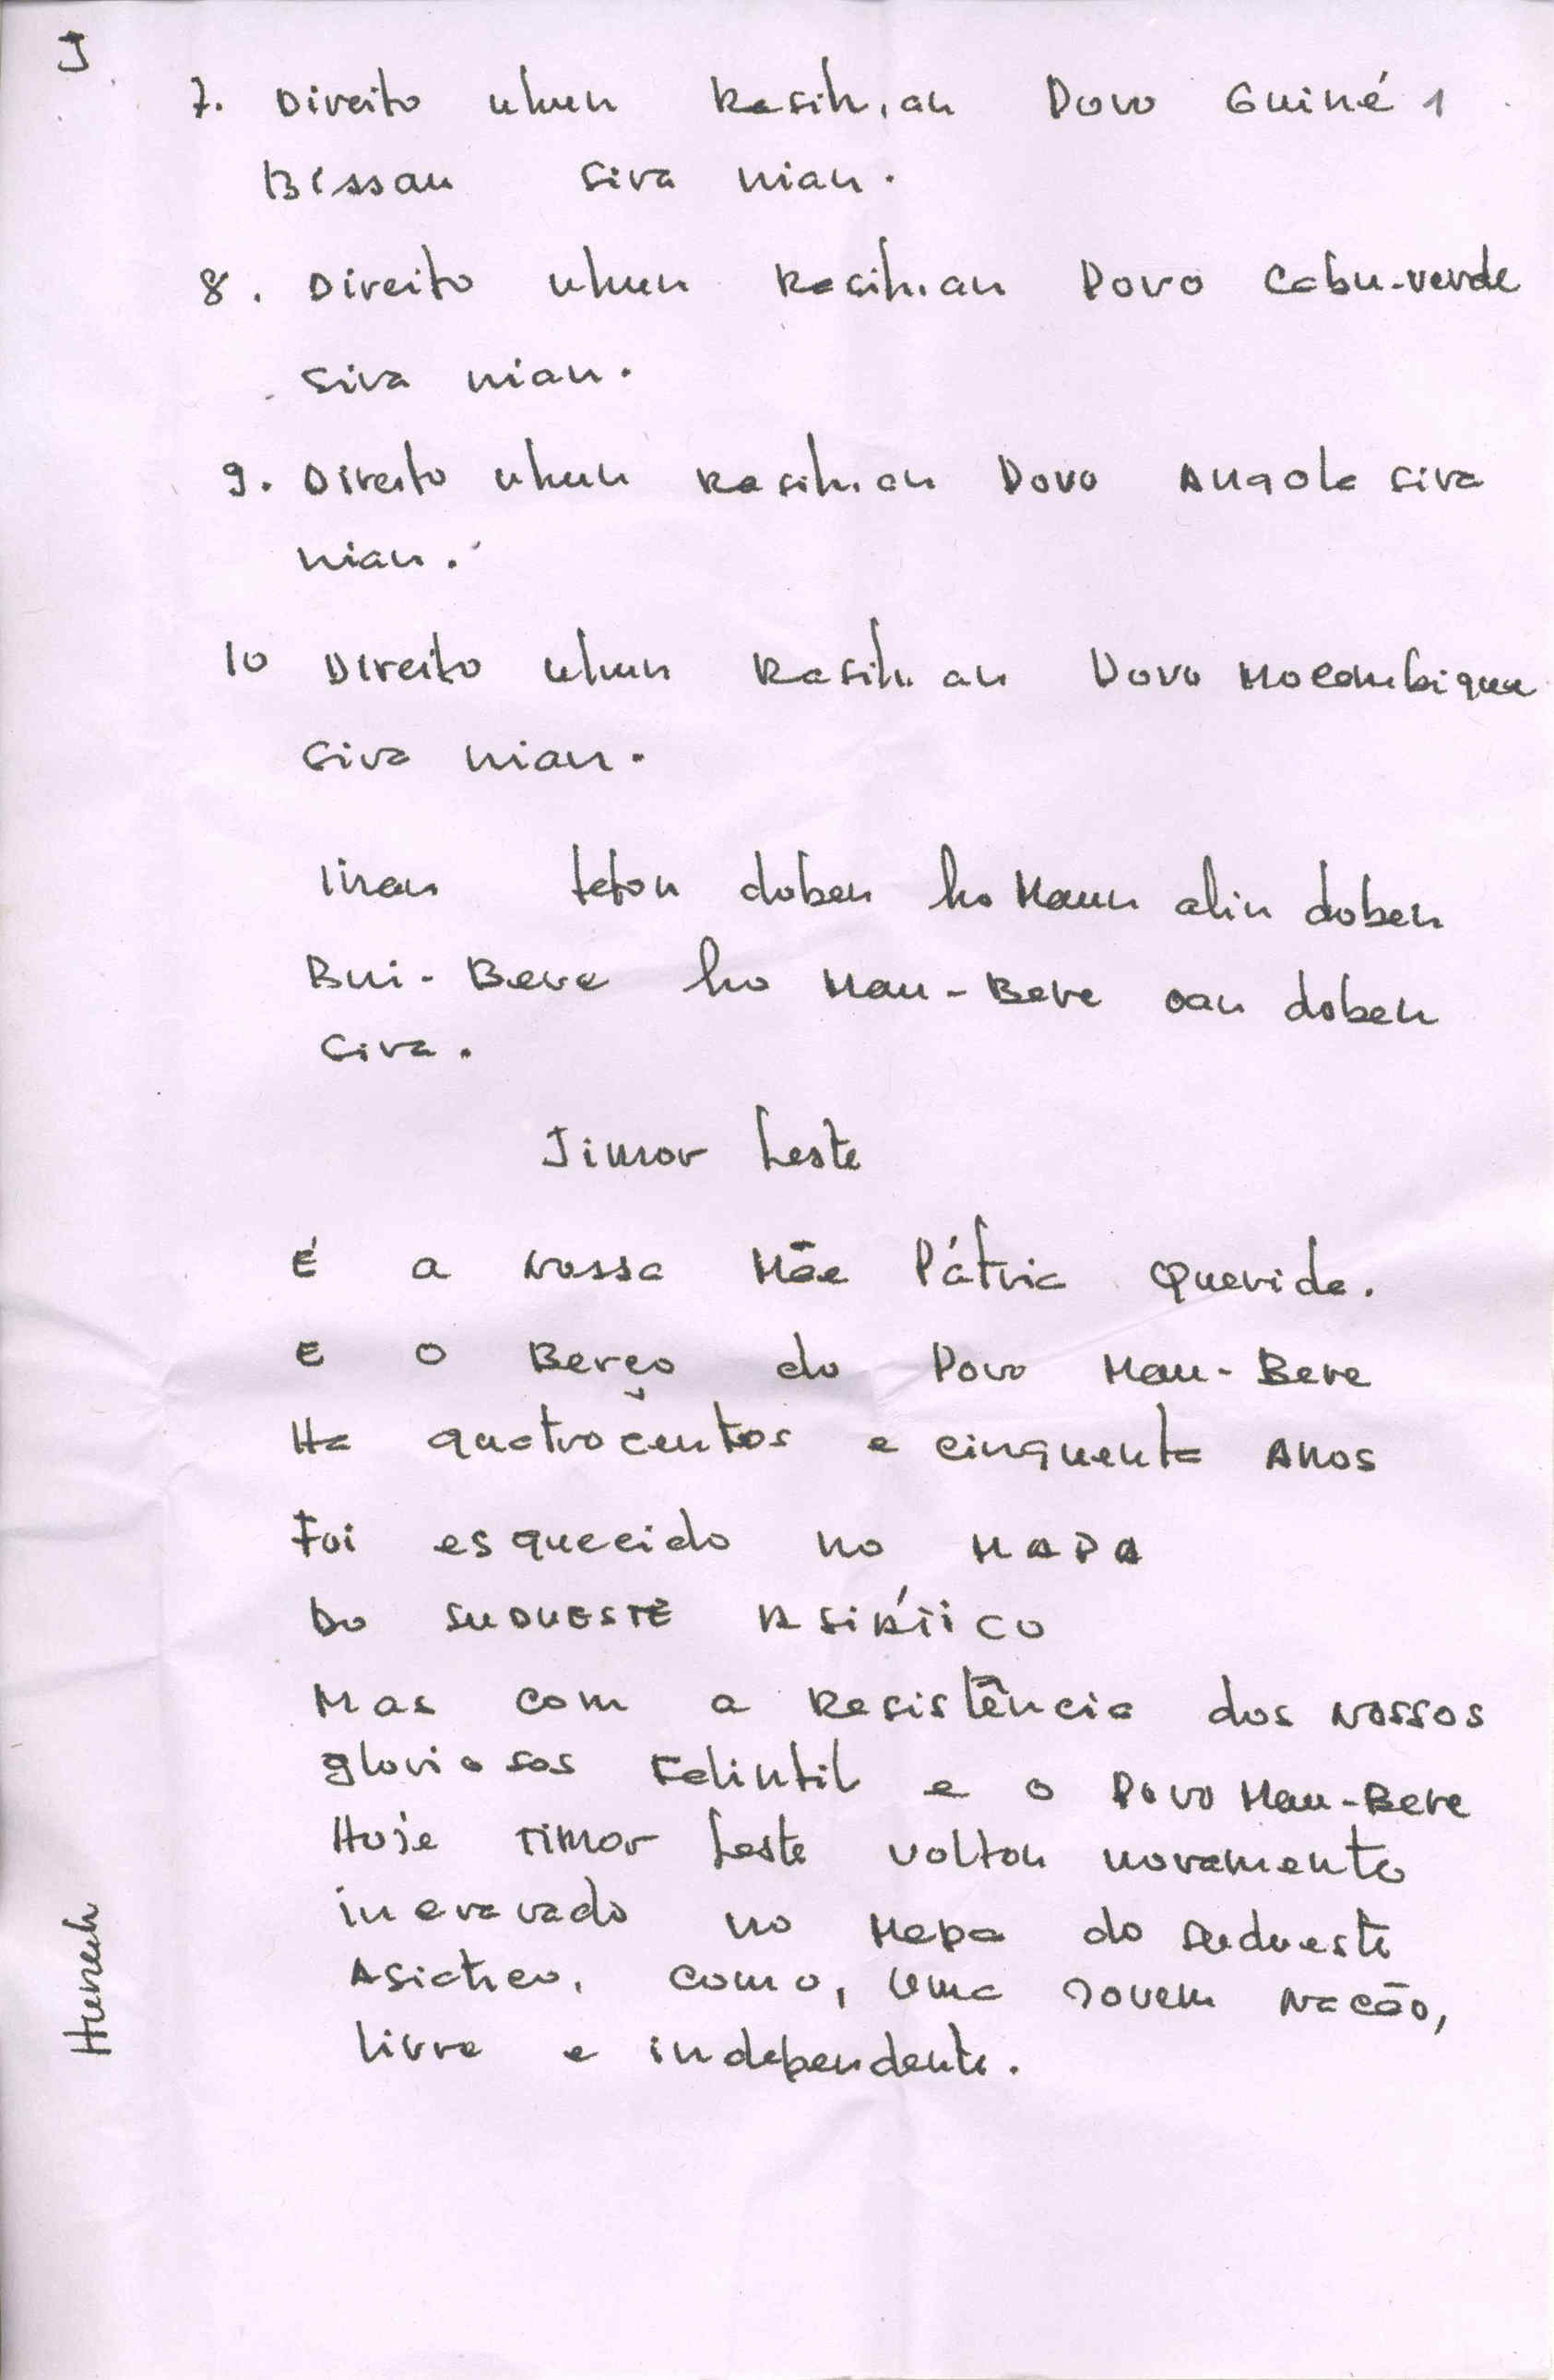 J
7. Direito uhun Rasih.an Povo Guiné 1
Bissau sira nian.
8. Direito uhun Rasih.an Povo Cabu-verde
sira nian.
9. Direito uhun Rasih.an Povo Angola sira
nian.
10 Direito uhun Rasih.an Povo Mocambique
sira nian.
Iinan feton doben ho Maun alin doben
Bui-Bere ho Mau-Bere oan doben
sira.
Timor Leste
É a Nossa Mãe Pátria Querida.
E o Berço do Povo Mau-Bere
Ha quatrocentos e cinquenta Anos
Foi esquecido no MAPA
Do SUDUESTE ASIÁTICO
Mas com a Resistência dos Nossos
gloriosos Falintil e o Povo Mau-Bere
Hoje Timor Leste voltou novamente
incravado no Mapa do Sudueste
Asiatico, como, Uma Jovem Nacão,
livre e independente.